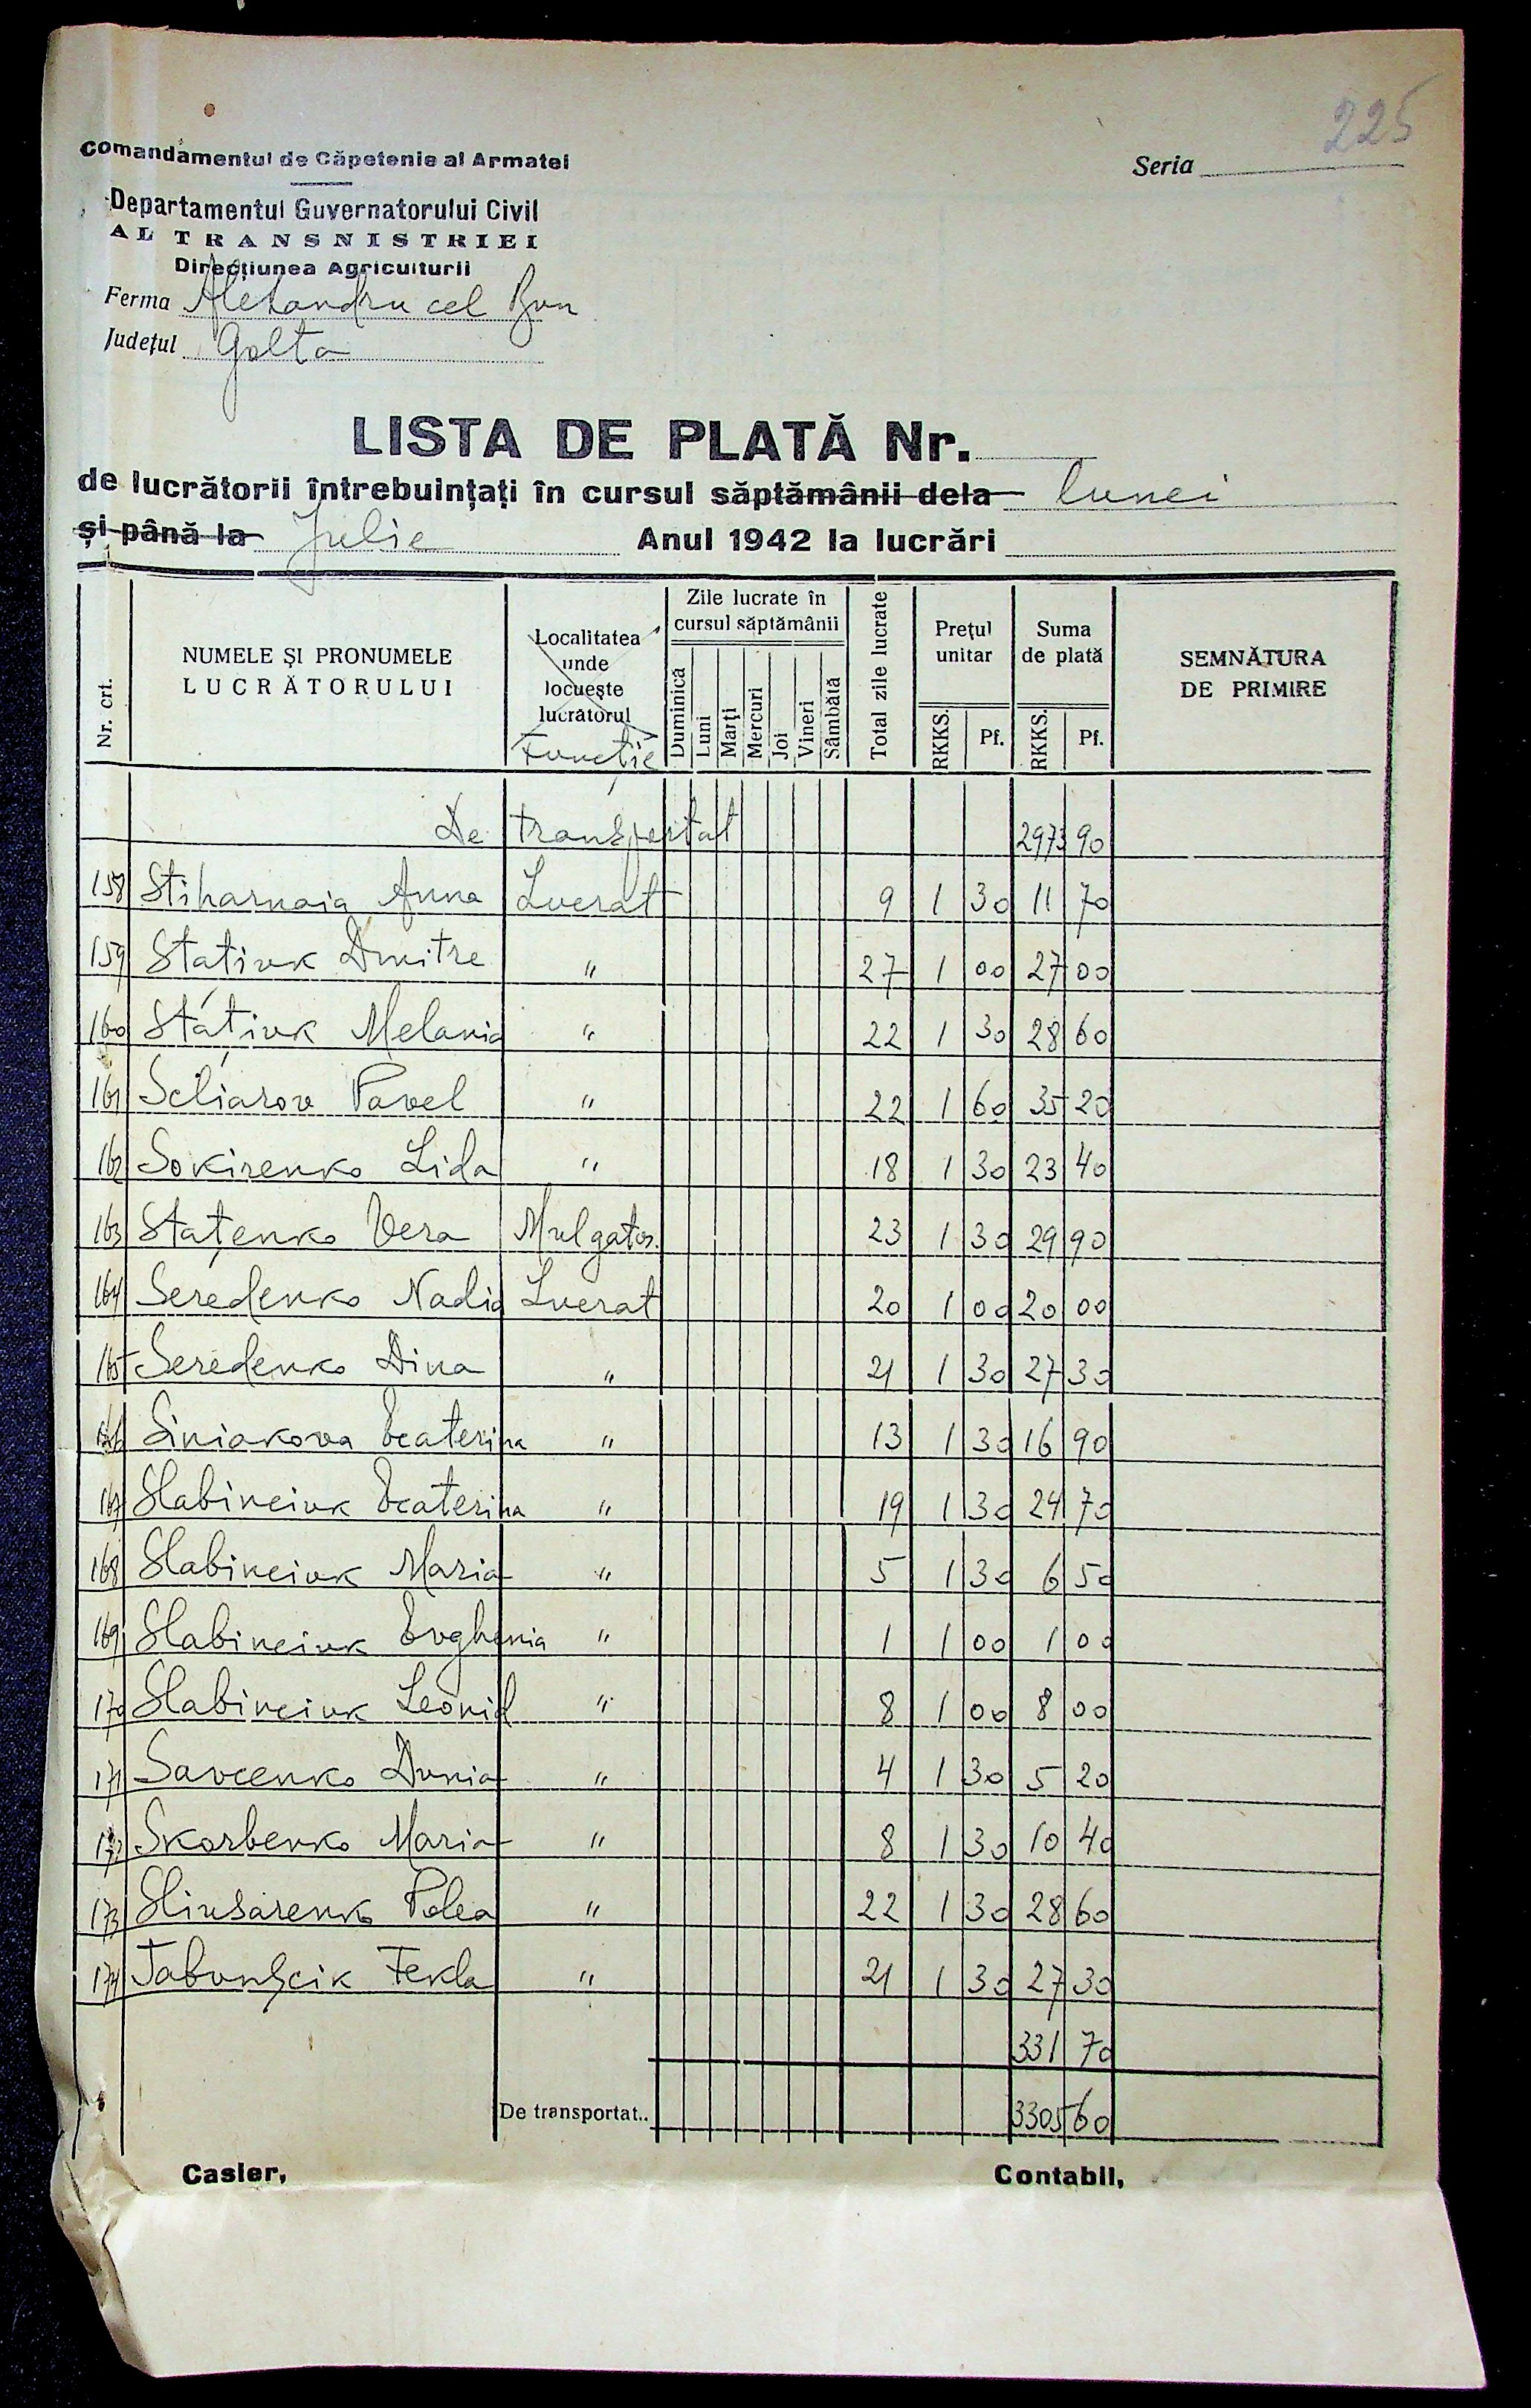 225
Comandamentul de Căpetenie al Armatei
Seria
Departamentul Guvernatorului Civil
AL TRANSNISTRIEI
Direcțiunea Agriculturii
Ferma Alexandru cel Bun
Județul Golta
LISTA DE PLATĂ Nr.
de lucrătorii întrebuințați în cursul săptămânii dela lunei
și până la Julie Anul 1942 la lucrări
Nr. crt. NUMELE ȘI PRONUMELE LUCRĂTORULUI Localitatea unde locuește lucrătorul Funcție Zile lucrate în cursul săptămânii Duminică Luni Marți Mercuri Joi Vineri Sâmbătă Total zile lucrate Prețul unitar RKKS. Pf. Suma de plată RKKS. Pf. SEMNĂTURA DE PRIMIRE
De transportat 2973 90
158 Stiharnaia Anna Lucrat 9 1 30 11 70
159 Statiuk Dmitre " 27 1 00 27 00
160 Stațiuk Melania " 22 1 30 28 60
161 Scliarov Pavel " 22 1 60 35 20
162 Sokirenko Lida " 18 1 30 23 40
163 Stațenko Vera Mulgator. 23 1 30 29 90
164 Seredenko Nadia Lucrat 20 1 00 20 00
165 Seredenko Dina " 21 1 30 27 30
166 Siniakova Ecaterina " 13 1 30 16 90
167 Slabinciuk Ecaterina " 19 1 30 24 70
168 Slabinciuk Maria " 5 1 30 6 50
169 Slabinciuk Evghenia " 1 1 00 1 00
170 Slabinciuk Leonid " 8 1 00 8 00
171 Savcenko Dunia " 4 1 30 5 20
172 Skorbenko Maria " 8 1 30 10 40
173 Sliusarenko Polea " 22 1 30 28 60
174 Tabunșcik Fekla " 21 1 30 27 30
331 70
De transportat.. 3305 60
Casier, Contabil,